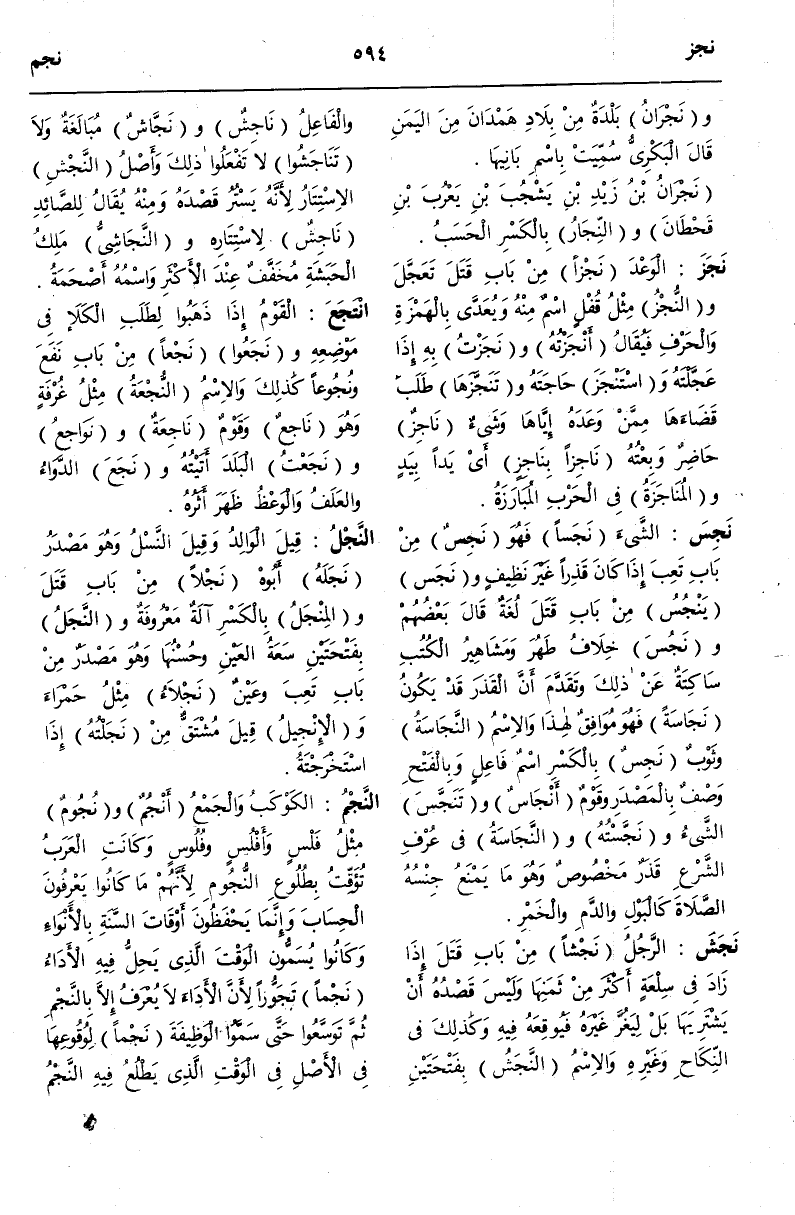 نجز
٥٩٤
نجم
و ( نَجْرَانُ ) بَلْدَةٌ مِنْ بِلَادِ هَمْدَانَ مِنَ الْيَمَنِ
قَالَ الْبَكْرِىُّ سُمِّيَتْ بِاسْمِ بَانِيهَا .
( نَجْرَانُ بْنُ زَيْدِ بْنِ يَشْجُبَ بْنِ يَعْرُبَ بْنِ
قَحْطَانَ ) و ( النِّجَارُ ) بِالْكَسْرِ الْحَسَبُ .
نَجَزَ : الْوَعْدَ ( نَجْزاً ) مِنْ بَابِ قَتَلَ تَعَجَّلَ
و ( النُّجْزُ ) مِثْلُ قُفْلٍ اسْمٌ مِنْهُ وَيُعَدَّى بِالْهَمْزَةِ
وَالْحَرْفِ فَيُقَالُ ( أَنْجَزْتُهُ ) و ( نَجَزْتُ ) بِهِ إِذَا
عَجَّلْتَهُ وَ ( اسْتَنْجَزَ ) حَاجَتَهُ و ( تَنَجَّزَهَا ) طَلَبَ
قَضَاءَهَا مِمَّنْ وَعَدَهُ إِيَّاهَا وَشَىءٌ ( نَاجِزٌ )
حَاضِرٌ وَبِعْتُهُ ( نَاجِزاً بِنَاجِزٍ ) أَىْ يَداً بِيَدٍ
و ( الْمُنَاجَزَةُ ) فِى الْحَرْبِ الْمُبَارَزَةُ .
نَجِسَ : الشَّىءَ ( نَجَساً ) فَهُوَ ( نَجِسٌ ) مِنْ
بَابِ تَعِبَ إِذَا كَانَ قَذِراً غَيْرَ نَظِيفٍ و ( نَجَس )
( يَنْجُسُ ) مِنْ بَابِ قَتَلَ لُغَةٌ قَالَ بَعْضُهُمْ
و ( نَجُسَ ) خِلَافُ طَهُرَ وَمَشَاهِيرُ الْكُتُبِ
سَاكِتَةٌ عَنْ ذٰلِكَ وَتَقَدَّمَ أَنَّ الْقَذَرَ قَدْ يَكُونُ
( نَجَاسَةً ) فَهُوَ مُوَافِقٌ لِهٰذَا وَالِاسْمُ ( النَّجَاسَةُ )
وَثَوْبٌ ( نَجِسٌ ) بِالْكَسْرِ اسْمُ فَاعِلٍ وَبِالْفَتْحِ
وَصْفٌ بِالْمَصْدَرِ وَقَوْمٌ ( أَنْجَاسٌ ) و ( تَنَجَّسَ )
الشَّىءُ و ( نَجَّسْتُهُ ) و ( النَّجَاسَةُ ) فى عُرْفِ
الشَّرْعِ قَذَرٌ مَخْصُوصٌ وَهُوَ مَا يَمْنَعُ جِنْسُهُ
الصَّلَاةَ كَالْبَوْلِ وَالدَّمِ وَالْخَمْرِ .
نَجَشَ : الرَّجُلُ ( نَجْشاً ) مِنْ بَابِ قَتَلَ إِذَا
زَادَ فى سِلْعَةٍ أَكْثَرَ مِنْ ثَمَنِهَا وَلَيْسَ قَصْدُهُ أَنْ
يَشْتَرِيَهَا بَلْ لِيَغُرَّ غَيْرَهُ فَيُوقِعَهُ فِيهِ وَكَذٰلِكَ فى
النِّكَاحِ وَغَيْرِهِ وَالِاسْمُ ( النَّجَشُ ) بِفَتْحَتَيْنِ
والْفَاعِلُ ( نَاجِشٌ ) و ( نَجَّاشٌ ) مُبَالَغَةٌ وَلَا
( تَنَاجَشُوا ) لَا تَفْعَلُوا ذٰلِكَ وَأَصْلُ ( النَّجْشِ )
الِاسْتِتَارُ لِأَنَّهُ يَسْتُرُ قَصْدَهُ وَمِنْهُ يُقَالُ لِلصَّائِدِ
( نَاجِشٌ ) لِاسْتِتَارِهِ و ( النَّجَاشِىُّ ) مَلِكُ
الْحَبَشَةِ مُخَفَّفٌ عِنْدَ الْأَكْثَرِ وَاسْمُهُ أَصْحَمَةُ .
انْتَجَعَ : الْقَوْمُ إِذَا ذَهَبُوا لِطَلَبِ الْكَلَإِ فى
مَوْضِعِهِ و ( نَجَعُوا ) ( نَجْعاً ) مِنْ بَابِ نَفَعَ
ونُجُوعاً كَذٰلِكَ وَالِاسْمُ ( النُّجْعَةُ ) مِثْلُ غُرْفَةٍ
وَهُوَ ( نَاجِعٌ ) وَقَوْمٌ ( نَاجِعَةٌ ) و ( نَوَاجِعُ )
و ( نَجَعْتُ ) الْبَلَدَ أَتَيْتُهُ و ( نَجَعَ ) الدَّوَاءُ
والعَلَفُ وَالْوَعْظُ ظَهَرَ أَثَرُهُ .
النَّجْلُ : قِيلَ الْوَالِدُ وَقِيلَ النَّسْلُ وَهُوَ مَصْدَرُ
( نَجَلَهُ ) أَبُوهُ ( نَجْلاً ) مِنْ بَابِ قَتَلَ
و ( الْمِنْجَلُ ) بِالْكَسْرِ آلَةٌ مَعْرُوفَةٌ و ( النَّجَلُ )
بِفَتْحَتَيْنِ سَعَةُ الْعَيْنِ وحُسْنُهَا وَهُوَ مَصْدَرٌ مِنْ
بَابِ تَعِبَ وعَيْنٌ ( نَجْلَاءُ ) مِثْلُ حَمْرَاءَ
وَ ( الْإِنْجِيلُ ) قِيلَ مُشْتَقٌّ مِنْ ( نَجَلْتُهُ ) إِذَا
اسْتَخْرَجْتَهُ .
النَّجْمُ : الْكَوْكَبُ وَالْجَمْعُ ( أَنْجُمٌ ) و ( نُجُومٌ )
مِثْلُ فَلْسٍ وَأَفْلُسٍ وفُلُوسٍ وَكَانَتِ الْعَرَبُ
تُؤَقِّتُ بِطُلُوعِ النُّجُومِ لِأَنَّهُمْ مَا كَانُوا يَعْرِفُونَ
الْحِسَابَ وَإِنَّمَا يَحْفَظُونَ أَوْقَاتَ السَّنَةِ بِالْأَنْوَاءِ
وَكَانُوا يُسَمُّونَ الْوَقْتَ الَّذِى يَحِلُّ فِيهِ الْأَدَاءُ
( نَجْماً ) تَجَوُّزاً لِأَنَّ الْأَدَاءَ لَا يُعْرَفُ إِلاَّ بِالنَّجْمِ
ثُمَّ تَوَسَّعُوا حَتَّى سَمَّوُا الْوَظِيفَةَ ( نَجْماً ) لِوُقُوعِهَا
فى الْأَصْلِ فى الْوَقْتِ الَّذِى يَطْلُعُ فِيهِ النَّجْمُ